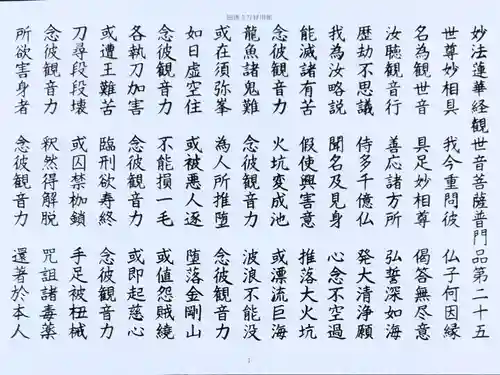 妙法蓮華経観世音菩薩普門品第二十五
世尊妙相具 我今重問彼 仏子何因縁
名為観世音 具足妙相尊 偈答無尽意
汝聴観音行 善応諸方所 弘誓深如海
歴劫不思議 侍多千億仏 発大清浄願
我為汝略説 聞名及見身 心念不空過
能滅諸有苦 假使興害意 推落大火坑
念彼観音力 火坑変成池 或漂流巨海
龍魚諸鬼難 念彼観音力 波浪不能没
或在須弥峯 為人所推堕 念彼観音力
如日虚空住 或被悪人逐 堕落金剛山
念彼観音力 不能損一毛 或値怨賊繞
各執刀加害 念彼観音力 或即起慈心
或遭王難苦 臨刑欲寿終 念彼観音力
刀尋段段壊 或囚禁枷鎖 手足被杻械
念彼観音力 釈然得解脱 咒詛諸毒薬
所欲害身者 念彼観音力 還著於本人
1